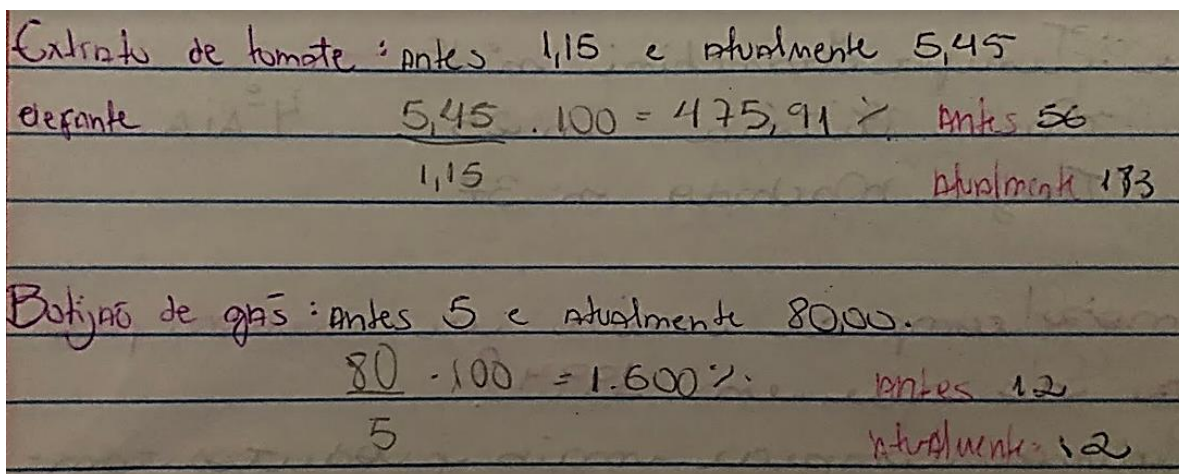 Extrato de tomate: Antes 1,15 e Atualmente 5,45
elefante 5,45 . 100 = 475,91 % Antes 56
1,15 Atualmente 183
Botijão de gás: Antes 5 e Atualmente 80,00.
80 . 100 = 1.600 %. Antes 12
5 Atualmente 12